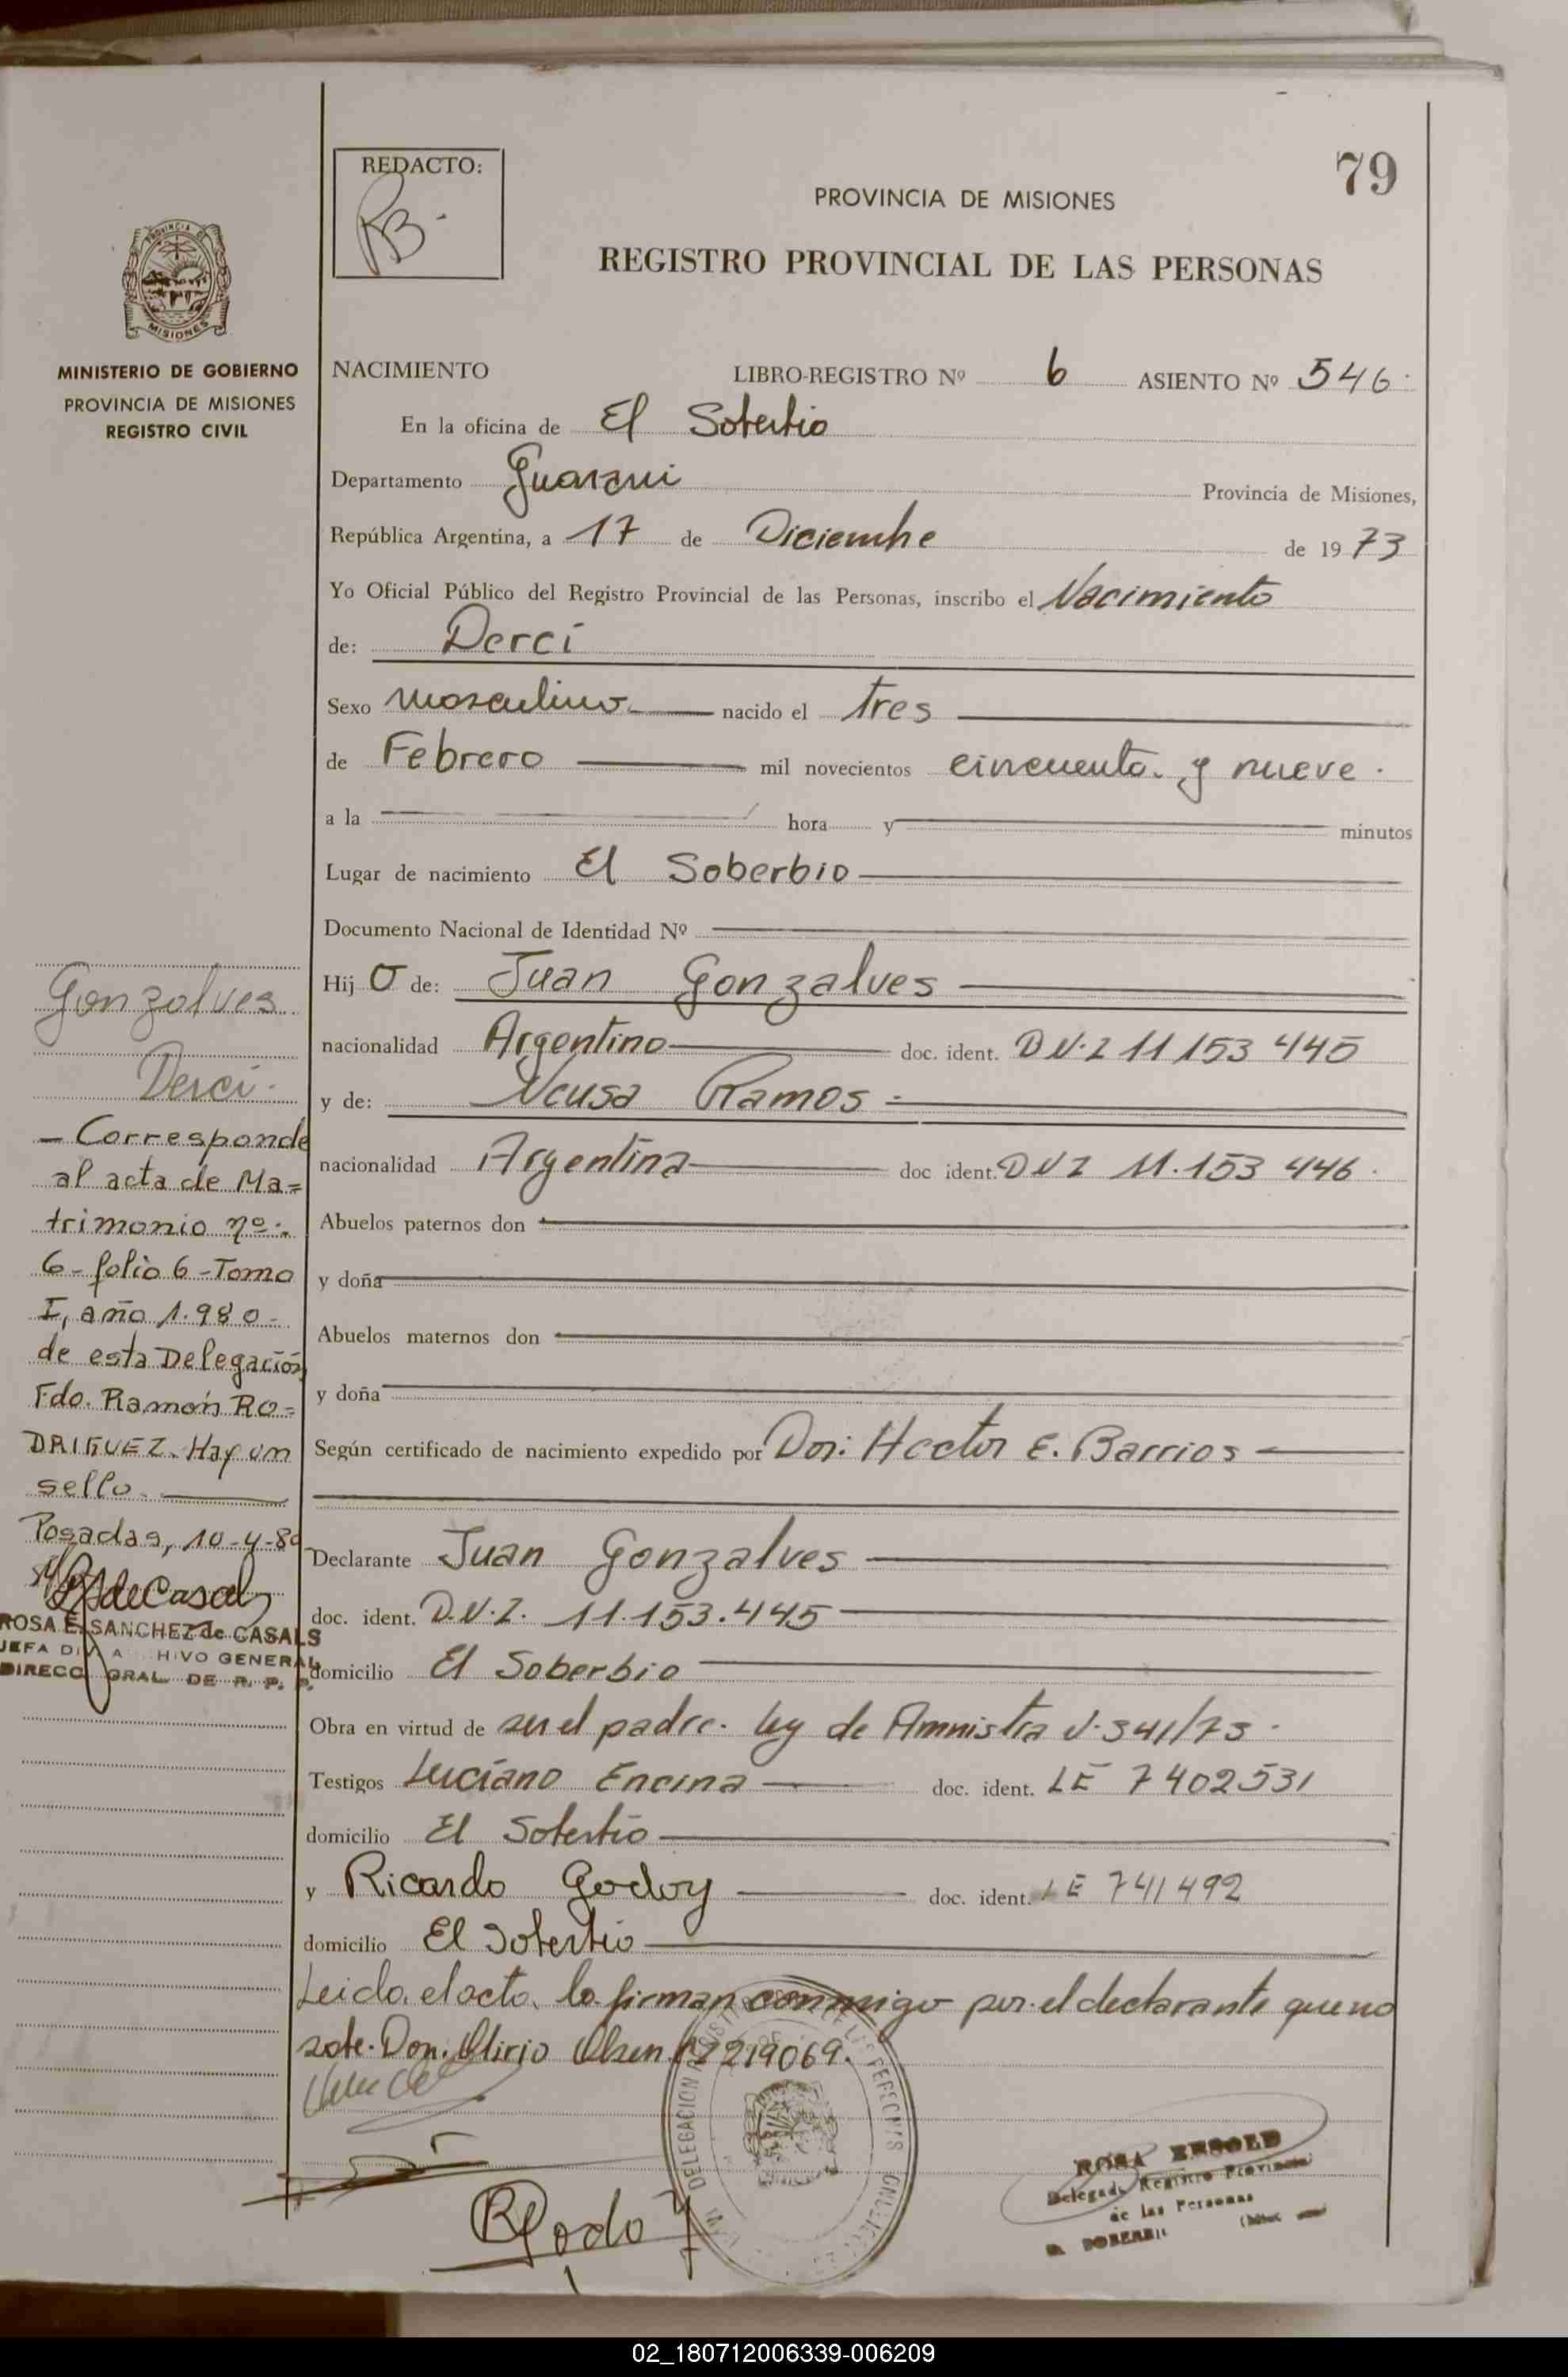 79
REDACTO:
PROVINCIA DE MISIONES
REGISTRO PROVINCIAL DE LAS PERSONAS
PROVINCIA DE
MISIONES
MINISTERIO DE GOBIERNO
PROVINCIA DE MISIONES
REGISTRO CIVIL
NACIMIENTO LIBRO-REGISTRO Nº 6 ASIENTO Nº 546.
En la oficina de El Soberbio
Departamento Guarani Provincia de Misiones,
República Argentina, a 17 de Diciembre de 1973
Yo Oficial Público del Registro Provincial de las Personas, inscribo el Nacimiento
de: Derci
Sexo masculino. nacido el tres
de Febrero mil novecientos cincuenta y nueve.
a la hora y minutos
Lugar de nacimiento El Soberbio
Documento Nacional de Identidad Nº
Hijo de: Juan Gonzalves
nacionalidad Argentino doc. ident. D N.I 11 153 445
y de: Neusa Ramos
nacionalidad Argentina doc ident. D N I 11.153 446.
Abuelos paternos don
y doña
Abuelos maternos don
y doña
Según certificado de nacimiento expedido por Dor: Hector E. Barrios
Declarante Juan Gonzalves
doc. ident. D.N.I. 11.153.445
domicilio El Soberbio
Obra en virtud de ser el padre. ley de Amnistia N. 341/73.
Testigos Luciano Encina doc. ident. LE 7402531
domicilio El Soberbio
y Ricardo Godoy doc. ident. LE 741492
domicilio El Soberbio
Leida el acta, la firman conmigo por el declarante que no
sabe. Don. Olirio Olsen 219069.
Gonzalves
Derci.
- Corresponde
al acta de Ma=
trimonio nº:
6- folio 6 -Tomo
I, año 1.980-
de esta Delegación
Fdo. Ramón RO=
DRIGUEZ. Hay un
sello.
Posadas, 10-4-80
ROSA E. SANCHEZ de CASALS
JEFA DIV A HIVO GENERAL
DIRECC GRAL. DE R. P. P.
RGodoy
DELEGACION
ROSA
Delegado Registro Provincial
de las Personas
02_180712006339-006209